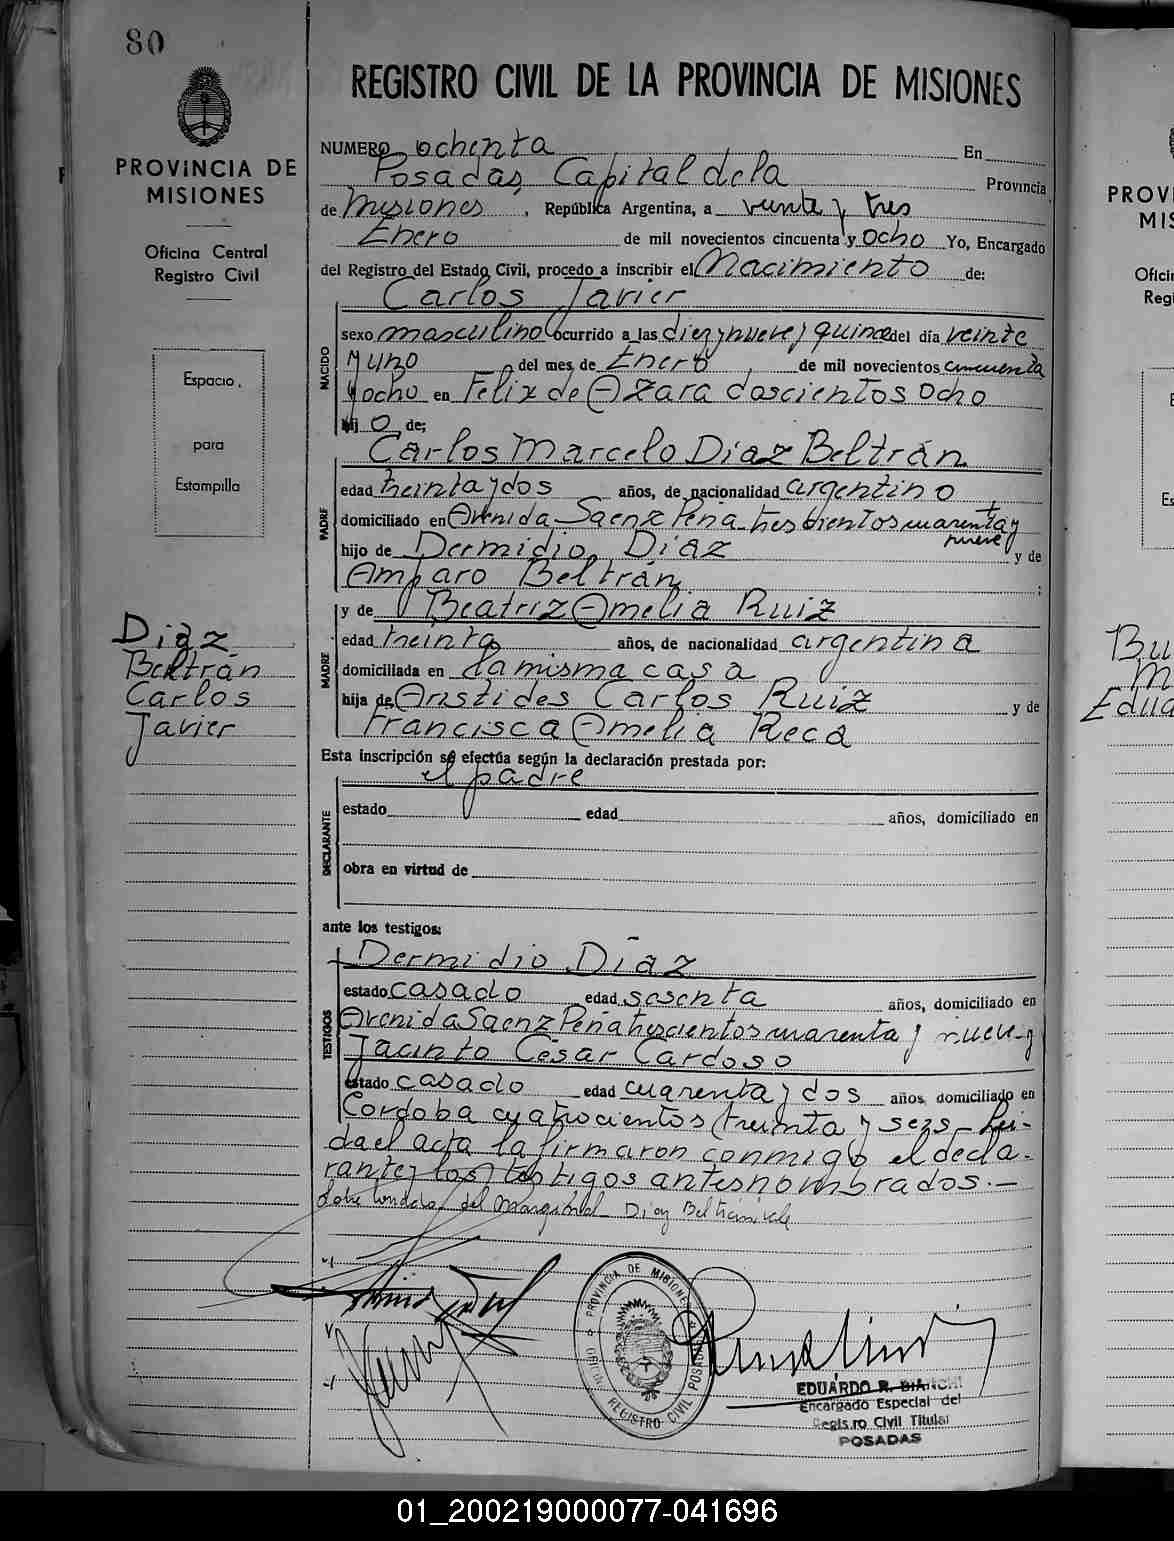 80
REGISTRO CIVIL DE LA PROVINCIA DE MISIONES
PROVINCIA DE
MISIONES
Oficina Central
Registro Civil
Espacio
para
Estampilla
Diaz
Beltrán
Carlos
Javier
NUMERO ochenta En
Posadas, Capital de la Provincia
de Misiones, República Argentina, a veinte y tres
Enero de mil novecientos cincuenta y ocho Yo, Encargado
del Registro del Estado Civil, procedo a inscribir el Nacimiento de:
Carlos Javier
NACIDO
sexo masculino ocurrido a las diez y nueve y quince del día veinte
y uno del mes de Enero, de mil novecientos cincuenta
y ocho en Felix de Azara doscientos ocho
hijo de;
Carlos Marcelo Diaz Beltrán
PADRE
edad treinta y dos años, de nacionalidad argentino,
domiciliado en Avenida Saenz Peña trescientos cuarenta y
nueve
hijo de Dermidio Diaz y de
Amparo Beltrán;
y de Beatriz Amelia Ruiz
MADRE
edad treinta años, de nacionalidad argentina
domiciliada en la misma casa
hija de Aristides Carlos Ruiz y de
Francisca Amelia Reca
Esta inscripción se efectúa según la declaración prestada por:
el padre
DECLARANTE
estado edad años, domiciliado en
obra en virtud de
ante los testigos:
Dermidio Diaz
TESTIGOS
estado casado edad sesenta años, domiciliado en
Avenida Saenz Peña trescientos cuarenta y nueve y
Jacinto César Cardoso
estado casado edad cuarenta y dos años, domiciliado en
Cordoba cuatrocientos treinta y seis - Leí-
da el acta la firmaron conmigo el decla-
rante y los testigos antes nombrados.-
del marginal Diaz Beltrán vale
PROVINCIA DE MISIONES
REGISTRO CIVIL POSADAS
EDUARDO R. BIANCHI
Encargado Especial del
Registro Civil Titular
POSADAS
PROV
MIS
Oficin
Regi
E
Es
Bu
M
Edua
01_200219000077-041696